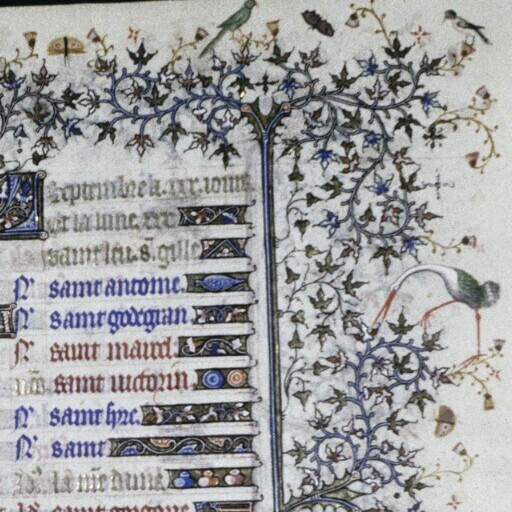 Septembre a .xxx. iours
et la lune .xxx.
saint leu. s. gille
N. saint antome.
N. saint godegran
N. saint marcel
saint uictorin
N. saint hyre.
N. saint
la nre dame